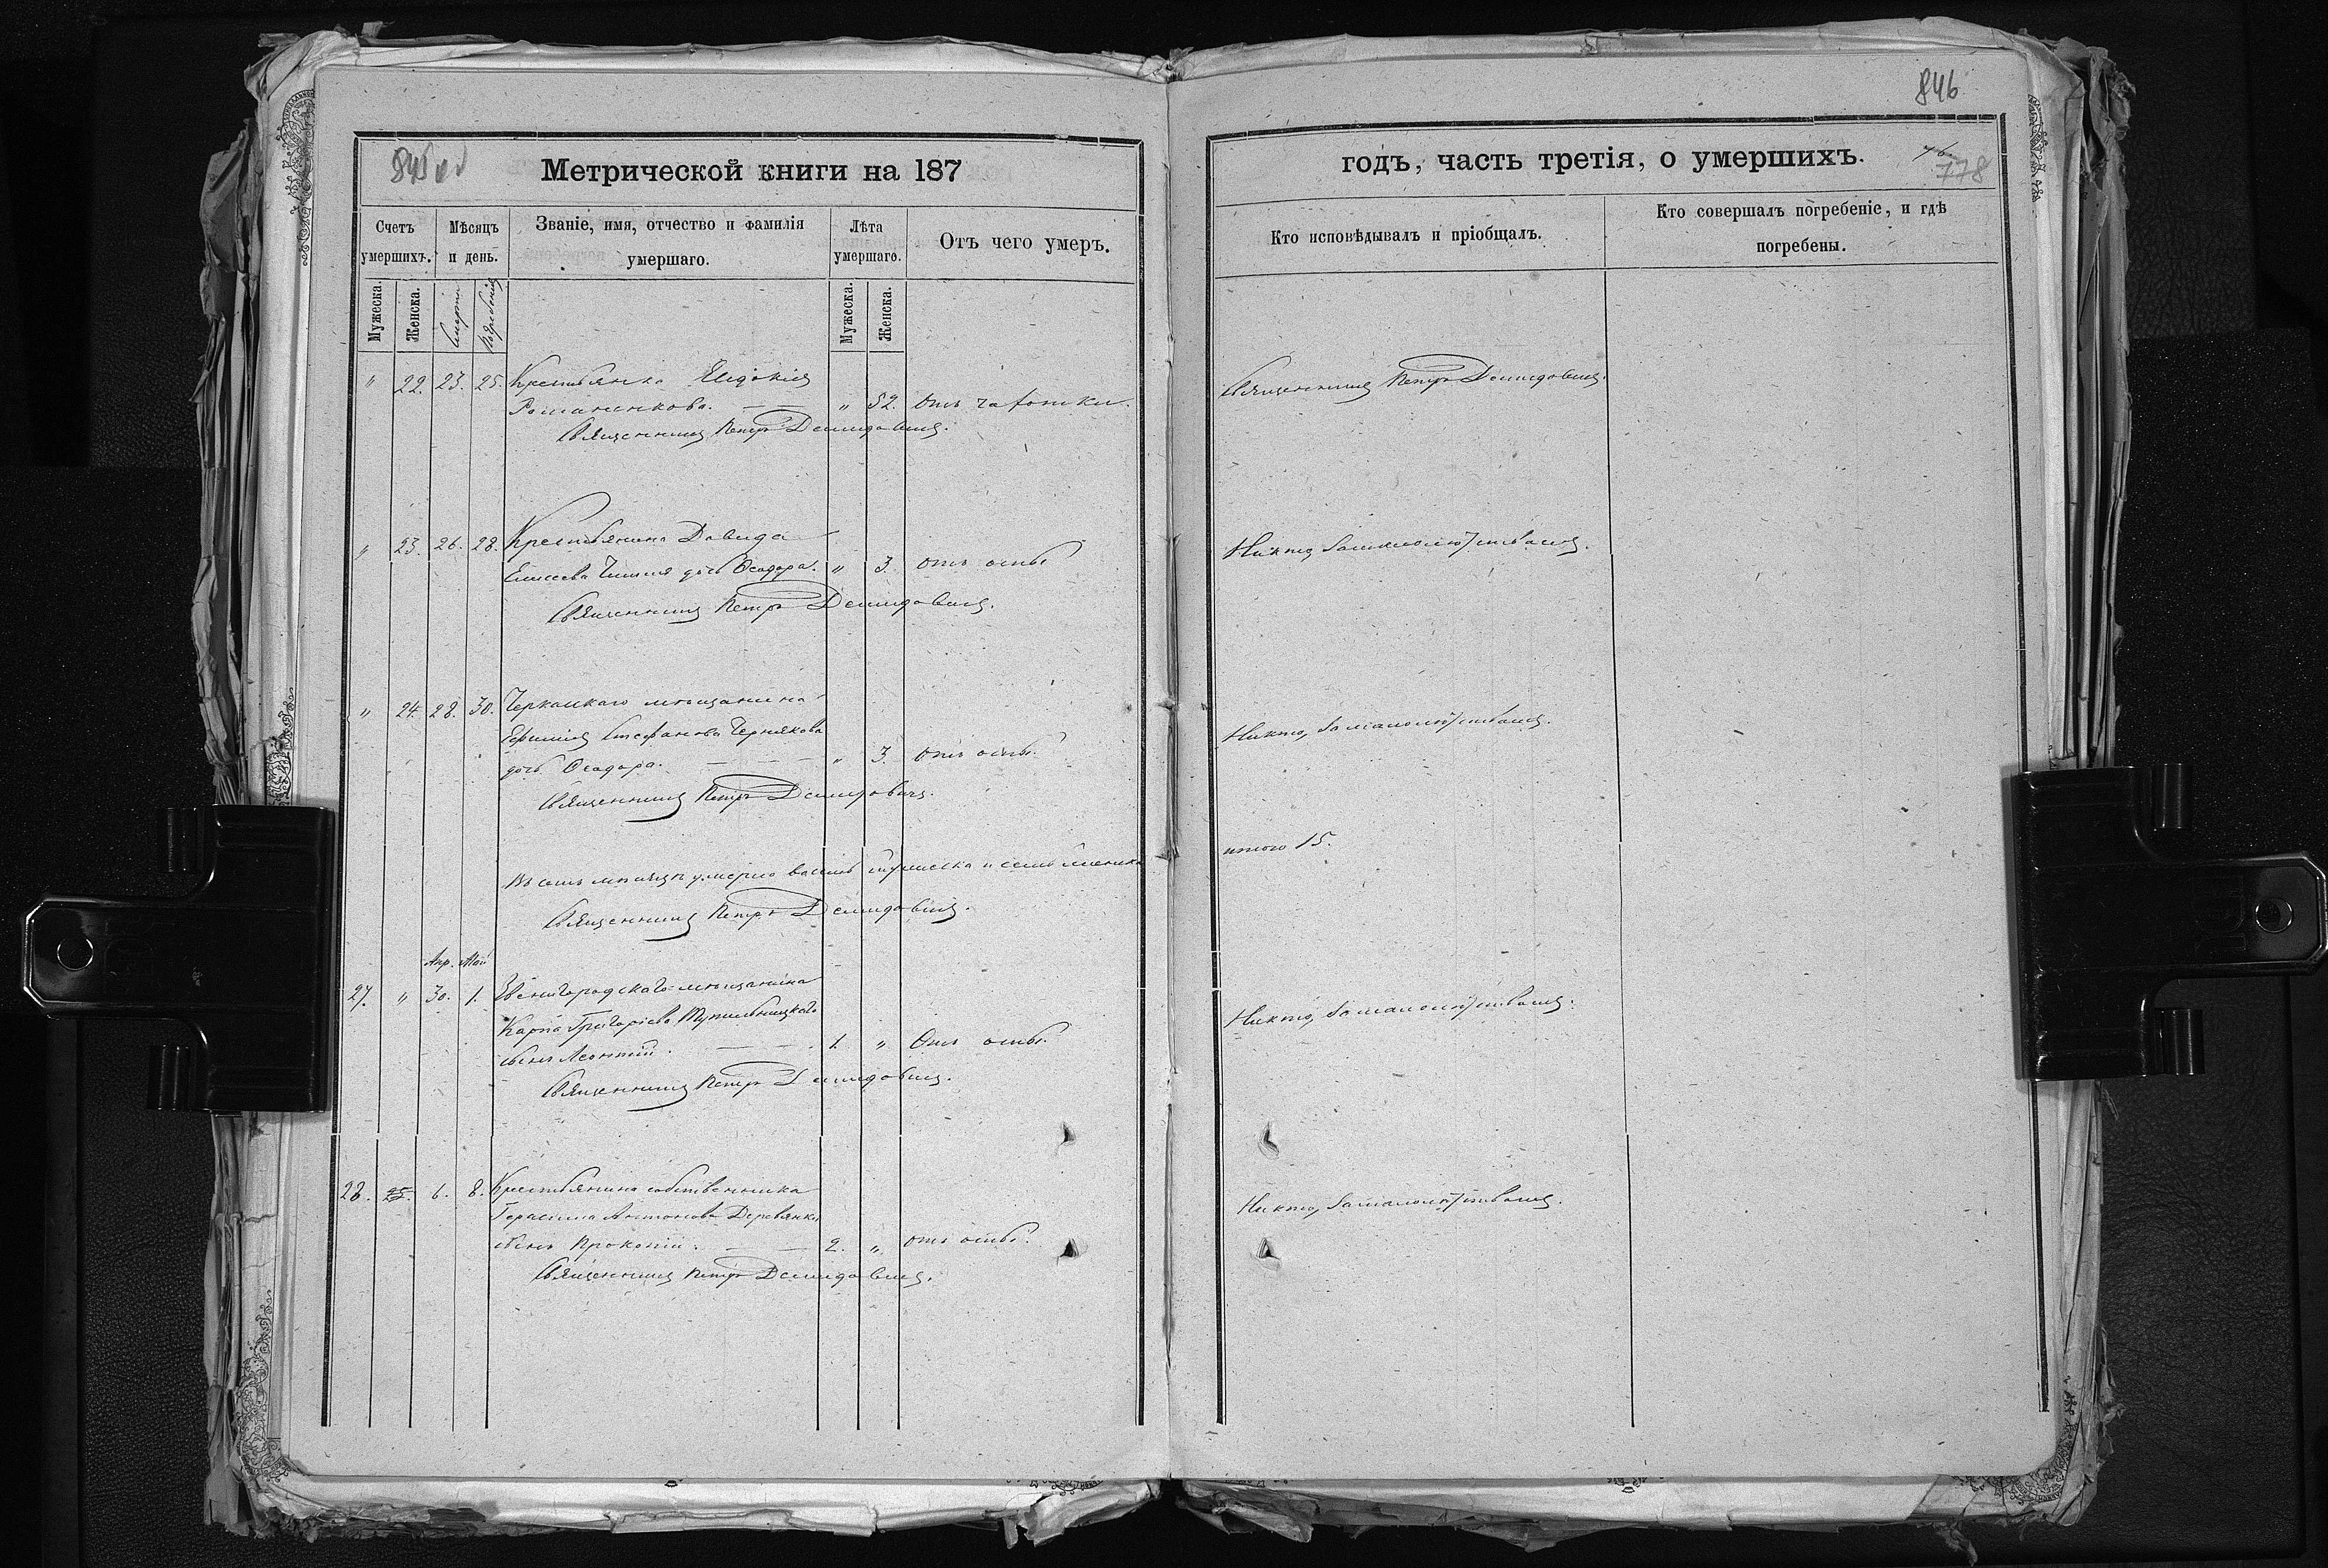 846
845 об
Метрической книги на 187
годъ, часть третія, о умершихъ.
778
Счетъ умершихъ.
Мѣсяцъ и день.
Званіе, имя, отчество и фамилія умершаго.
Лѣта умершаго.
Отъ чего умеръ.
Кто исповѣдывалъ и пріобщалъ.
Кто совершалъ погребеніе, и гдѣ погребены.
Мужеска.
Женска.
Смерти
Погребенія
Мужеска.
Женска.
" 22. 23. 25. Крестьянка Евдокія
Романенкова. " 52. Отъ чахотки.
Священникъ Петръ Демидовичъ.
Священникъ Петръ Демидовичъ.
" 23. 26. 28. Крестьянина Давида
Елисеева дочь Ѳеодора. " 3. отъ оспы
Священникъ Петръ Демидовичъ.
Никто, за малолѣтствомъ.
" 24. 28. 30. Черкаскаго мѣщанина
Ефимія Стефанова Чернякова
дочь Ѳеодора. " 3. Отъ оспы.
Священникъ Петръ Демидовичъ.
Никто, за малолѣтствомъ.
Въ семъ мѣсяцѣ умерло восемь мужеска и семь женска
итого 15.
Священникъ Петръ Демидовичъ.
Апр. Май
27. " 30. 1. Звенигородскаго мѣщанина
Карпа Григоріева
сынъ Леонтій. 1. " Отъ оспы.
Священникъ Петръ Демидовичъ.
Никто, за малолѣтствомъ.
28. 25. 6. 8. Крестьянина собственника
Герасима Антонова Деревянки
сынъ Прокопій. 2. " отъ оспы.
Священникъ Петръ Демидовичъ.
Никто, за малолѣтствомъ.